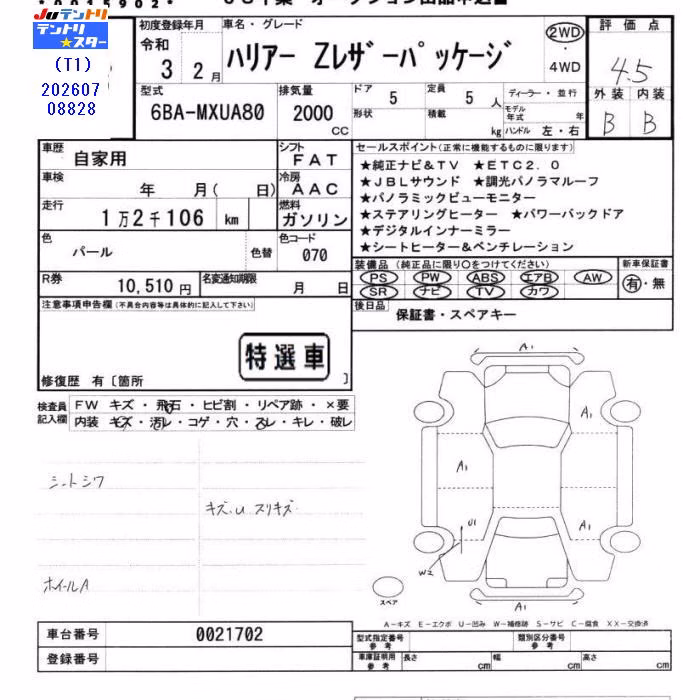 Juテントリ
テントリ
★スター
(T1)
202607
08828
初度登録年月
令和
3 2月
車名・グレード
ハリアー Zレザーパッケージ
2WD
・
4WD
評価点
4.5
外装 内装
B B
型式
6BA-MXUA80
排気量
2000
CC
ドア
5
定員
5 人
形状
積載
kg
ディーラー・並行
モデル年式 年
ハンドル 左・右
車歴
自家用
シフト
FAT
車検
年 月( 日)
冷房
AAC
走行
1万2千106 km
燃料
ガソリン
色
パール
色替
色コード
070
R券
10,510円
名変通知期限
月 日
セールスポイント(正常に機能するものに限ります)
★純正ナビ&TV ★ETC2.0
★JBLサウンド ★調光パノラマルーフ
★パノラミックビューモニター
★ステアリングヒーター ★パワーバックドア
★デジタルインナーミラー
★シートヒーター&ベンチレーション
装備品(純正品に限り○をつけてください)
PS PW ABS エアB AW
SR ナビ TV カワ
新車保証書
有・無
後日品
保証書・スペアキー
注意事項申告欄(不具合内容等は具体的に記入して下さい)
特選車
修復歴 有〔箇所 〕
検査員
記入欄
FW キズ・飛石・ヒビ割・リペア跡・×要
内装 キズ・汚レ・コゲ・穴・スレ・キレ・破レ
シートシワ
キズ.U スリキズ
ホイールA
A1
A1
A1
A1
U1
A1
W2
A1
スペア
A-キズ E-エクボ U-凹み W-補修跡 S-サビ C-腐食 XX-交換済
車台番号
0021702
登録番号
型式指定番号
参考
類別区分番号
参考
車庫証明用
参考
長さ cm
幅 cm
高さ cm